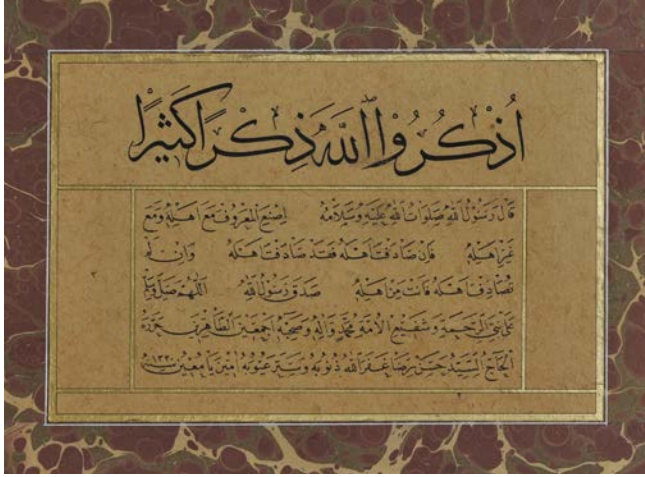 اُذْكُرُوْا اللّٰهَ ذِكْرًا كَثِيْرًا
قَالَ رَسُوْلُ اللّٰهِ صَلَوَاتُ اللّٰهِ عَلَيْهِ وَسَلَامُهُ اِصْنَعِ الْمَعْرُوْفَ مَعَ اَهْلِهِ وَمَعَ
غَيْرِ اَهْلِهِ فَاِنْ صَادَفْتَ اَهْلَهُ فَقَدْ صَادَفْتَ اَهْلَهُ وَاِنْ لَمْ
تُصَادِفْ اَهْلَهُ فَاَنْتَ مِنْ اَهْلِهِ صَدَقَ رَسُوْلُ اللّٰهِ اَللّٰهُمَّ صَلِّ وَسَلِّمْ
عَلٰى نَبِىِّ الرَّحْمَةِ وَشَفِيْعِ الْاُمَّةِ مُحَمَّدٍ وَاٰلِهِ وَصَحْبِهِ اَجْمَعِيْنَ الطَّاهِرِيْنَ حَرَّرَهُ
اَلْحَاجُّ السَّيِّدُ حَسَنْ رِضَا غَفَرَ اللّٰهُ ذُنُوْبَهُ وَسَتَرَ عُيُوْبَهُ اٰمِيْنَ يَا مُعِيْنُ سنة